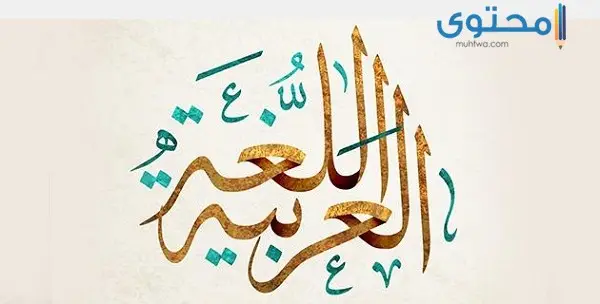 محتوى
muhtwa.com
اللغة
العربية